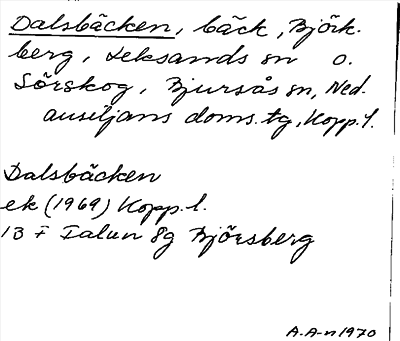 Dalsbäcken, bäck, Björk-
berg, Leksands sn o.
Sörskog, Bjursås sn, Ned.
ansiljans doms. tg, Kopp. l.
Dalsbäcken
ek (1969) Kopp. l.
13 F Falun 8g Björsberg
A.A-n 1970